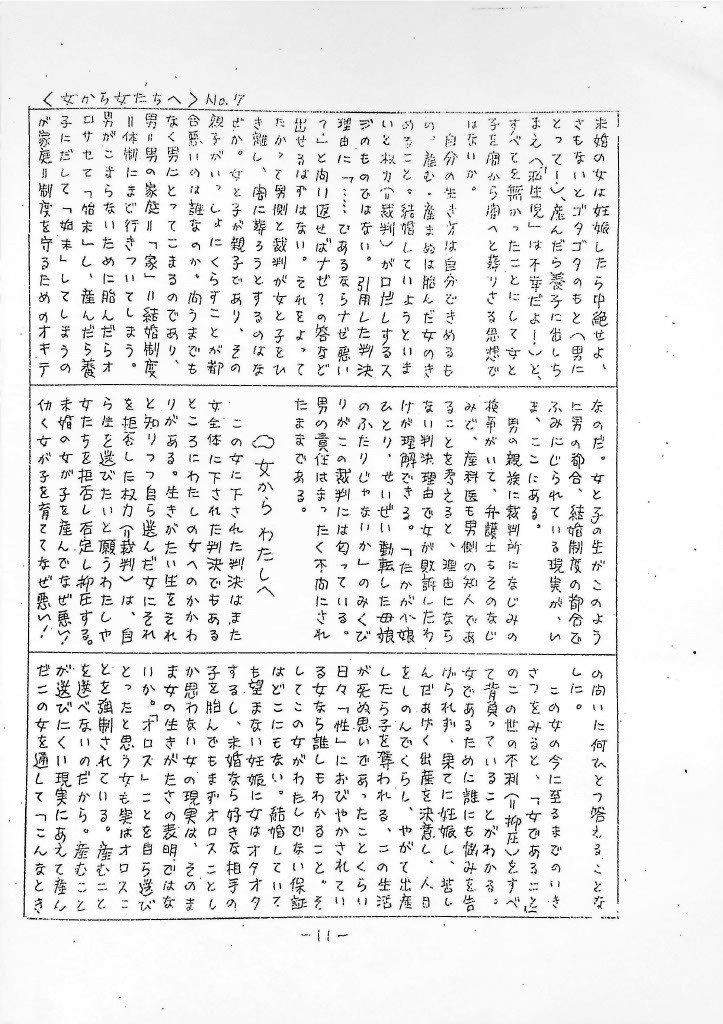 〈女から女たちへ〉No.7
未婚の女は妊娠したら中絶せよ、
さもないとゴタゴタのもと(男に
とって!)、産んだら養子に出しち
まえ(「私生児」は不幸だよ!)と、
すべてを無かったことにして女と
子を闇から闇へと葬りさる思想で
はないか。
自分の生き方は自分できめるも
の。産む・産まぬは胎んだ女のき
めること。結婚していようといま
いと権力(＝裁判)が口だしするス
ジのものではない。引用した判決
理由に「……であるならナゼ悪い
?」と問い返せばナゼ?の答など
出せるはずはない。それをよって
たかって男側と裁判が女と子をひ
き離し、闇に葬ろうとするのはな
ぜか。女と子が親子であり、その
親子がいっしょにくらすことが都
合悪いのは誰なのか。問うまでも
なく男にとってこまるのであり、
男＝男の家庭＝「家」＝結婚制度
＝体制にまで行きついてしまう。
男がこまらないために胎んだらオ
ロサセて「始末」し、産んだら養
子にだして「始末」してしまうの
が家庭＝制度を守るためのオキテ
なのだ。女と子の生がこのよう
に男の都合、結婚制度の都合で
ふみにじられている現実が、い
ま、ここにある。
男の親族に裁判所になじみの
検事がいて、弁護士もそのなじ
みで、産科医も男側の知人であ
ることを考えると、理由になら
ない判決理由で女が敗訴したわ
けが理解できる。「たかが小娘
ひとり、せいぜい動転した母娘
のふたりじゃないか」のみくび
りがこの裁判には匂っている。
男の責任はまったく不問にされ
たままである。
女から わたしへ
この女に下された判決はまた
女全体に下された判決でもある
ところにわたしの女へのかかわ
りがある。生きがたい生をそれ
と知りつつ自ら選んだ女にそれ
を拒否した権力(＝裁判)は、自
ら生を選びたいと願うわたしや
女たちを拒否し否定し抑圧する。
未婚の女が子を産んでなぜ悪い!
働く女が子を育ててなぜ悪い!
の問いに何ひとつ答えることな
しに。
この女の今に至るまでのいき
さつをみると、「女であること」
のこの世の不利(＝抑圧)をすべ
て背負っていることがわかる。
女であるために誰にも悩みを告
げられず、果てに妊娠し、苦し
んだあげく出産を決意し、人目
をしのんでくらし、やがて出産
したら子を奪われる、この生活
が死ぬ思いであったことくらい
日々「性」におびやかされてい
る女なら誰しもわかること。そ
してこの女がわたしでない保証
はどこにもない。結婚していて
も望まない妊娠に女はオタオタ
するし、未婚なら好きな相手の
子を胎んでもまずオロスことし
か思わない女の現実は、そのま
ま女の生きがたさの表明ではな
いか。「オロス」ことを自ら選び
とったと思う女も実はオロスこ
とを強制されている。産むこと
を選べないのだから。産むこと
が選びにくい現実にあえて産ん
だこの女を通して「こんなとき
-11-